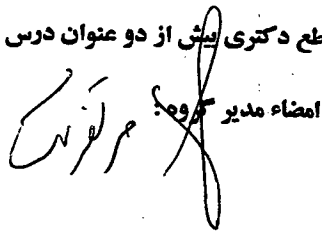 طع دکتری بیش از دو عنوان درس
امضاء مدیر گروه: